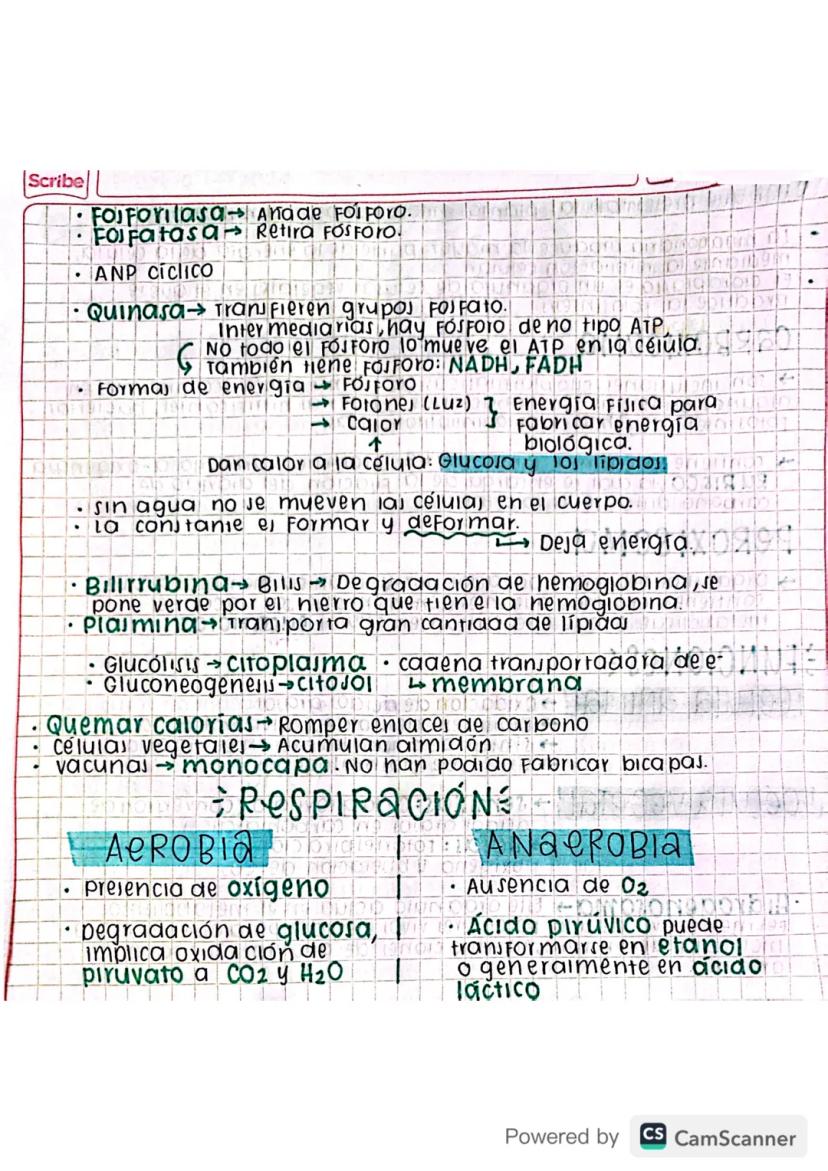 Scribe
· Fosforilasa→ Añade Fósforo.
· Fosfatasa→ Retira Fósforo.
· ANP cíclico
· Quinasa→ Transfieren grupos Fosfato.
Intermediarias, hay Fósforo de no tipo ATP.
No todo el Fósforo lo mueve el ATP en la célula.
También tiene Fósforo: NADH, FADH
· Formas de energía → Fósforo
→ Fotones (Luz) } Energía Física para
→ Calor Fabricar energía
↑ biológica.
Dan calor a la célula: Glucosa y los lípidos.
· Sin agua no se mueven las células en el cuerpo.
· La constante es Formar y deFormar.
↳ Deja energía.
· Bilirrubina→ Bilis → Degradación de hemoglobina, se
pone verde por el hierro que tiene la hemoglobina.
· Plasmina→ Transporta gran cantidad de lípidos
· Glucólisis → citoplasma · cadena transportadora de e-
· Gluconeogenesis→citosol ↳ membrana
· Quemar calorías→ Romper enlaces de carbono
· células vegetales→ Acumulan almidón
· vacunas → monocapa. No han podido Fabricar bicapas.
RESPIRACIÓN
AEROBIA ANAEROBIA
· Presencia de oxígeno · Ausencia de O2
· Degradación de glucosa, · Ácido pirúvico puede
implica oxidación de transformarse en etanol
piruvato a CO2 y H2O o generalmente en ácido
láctico
Powered by CS CamScanner